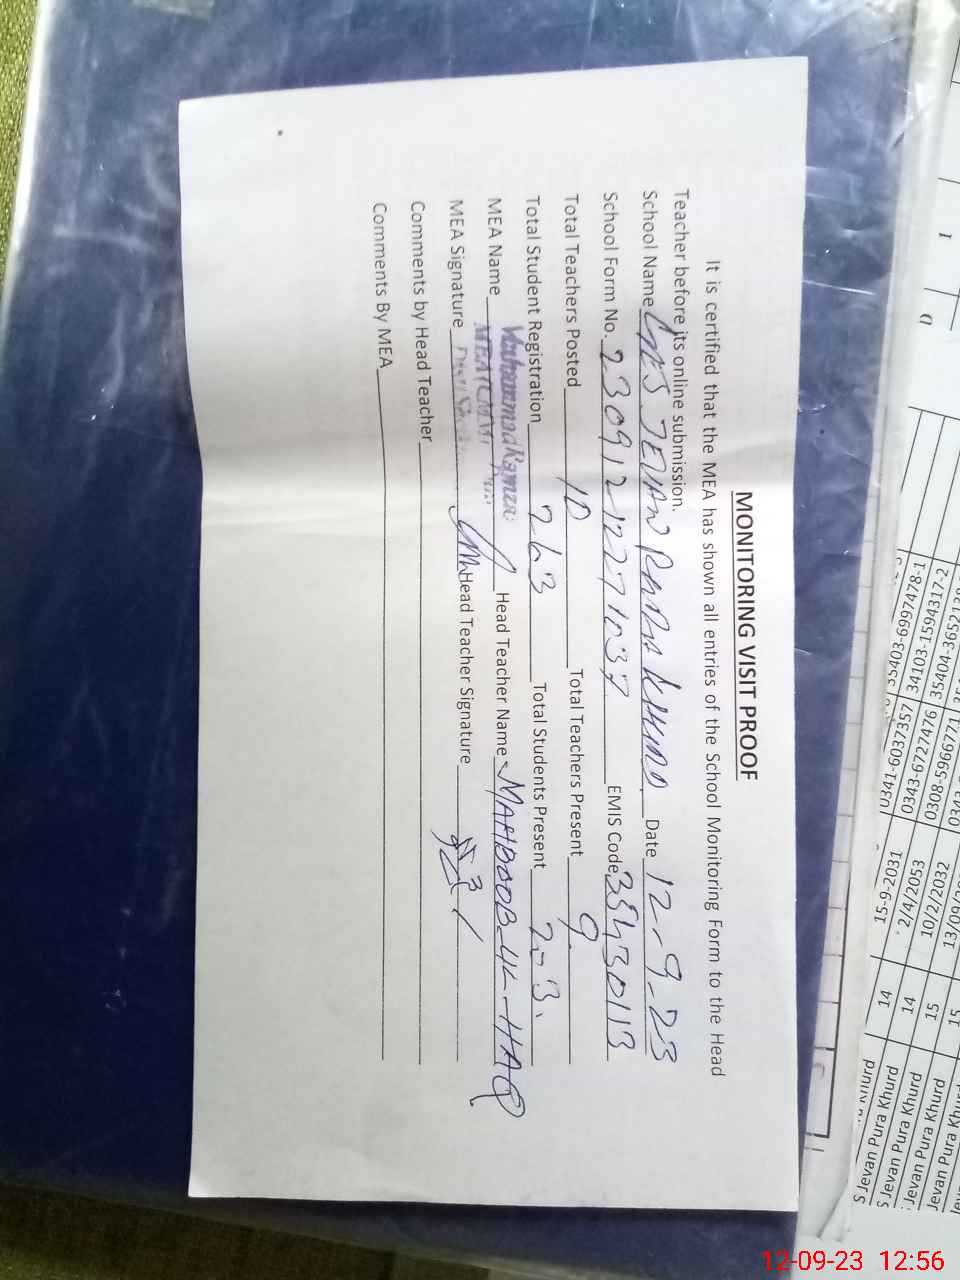 MONITORING VISIT PROOF
It is certified that the MEA has shown all entries of the School Monitoring Form to the Head
Teacher before its online submission.
School Name GES JEVAN PURA KHURD Date 12-9-23
School Form No. 230912-12771037 EMIS Code 35430113
Total Teachers Posted 10 Total Teachers Present 9
Total Student Registration 263 Total Students Present 203
MEA Name Muhammad Head Teacher Name MAHBOOB-UL-HAQ
MEA Signature Head Teacher Signature
Comments by Head Teacher
Comments By MEA
35403-6997478-1 0341-6037357 15-9-2031 14 S Jevan Pura Khurd
34103-1594317-2 0343-6727476 2/4/2053 14 Jevan Pura Khurd
0308-5966771 10/2/2032 15 Jevan Pura Khurd
12-09-23 12:56